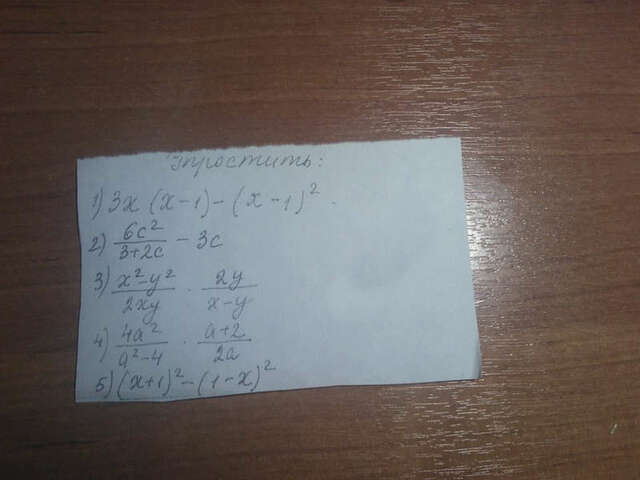 Упростить:
1) 3x (x-1) - (x-1)²
2) 6c²/(3+2c) - 3c
3) (x²-y²)/(2xy) · 2y/(x-y)
4) 4a²/(a²-4) · (a+2)/(2a)
5) (x+1)² - (1-x)²